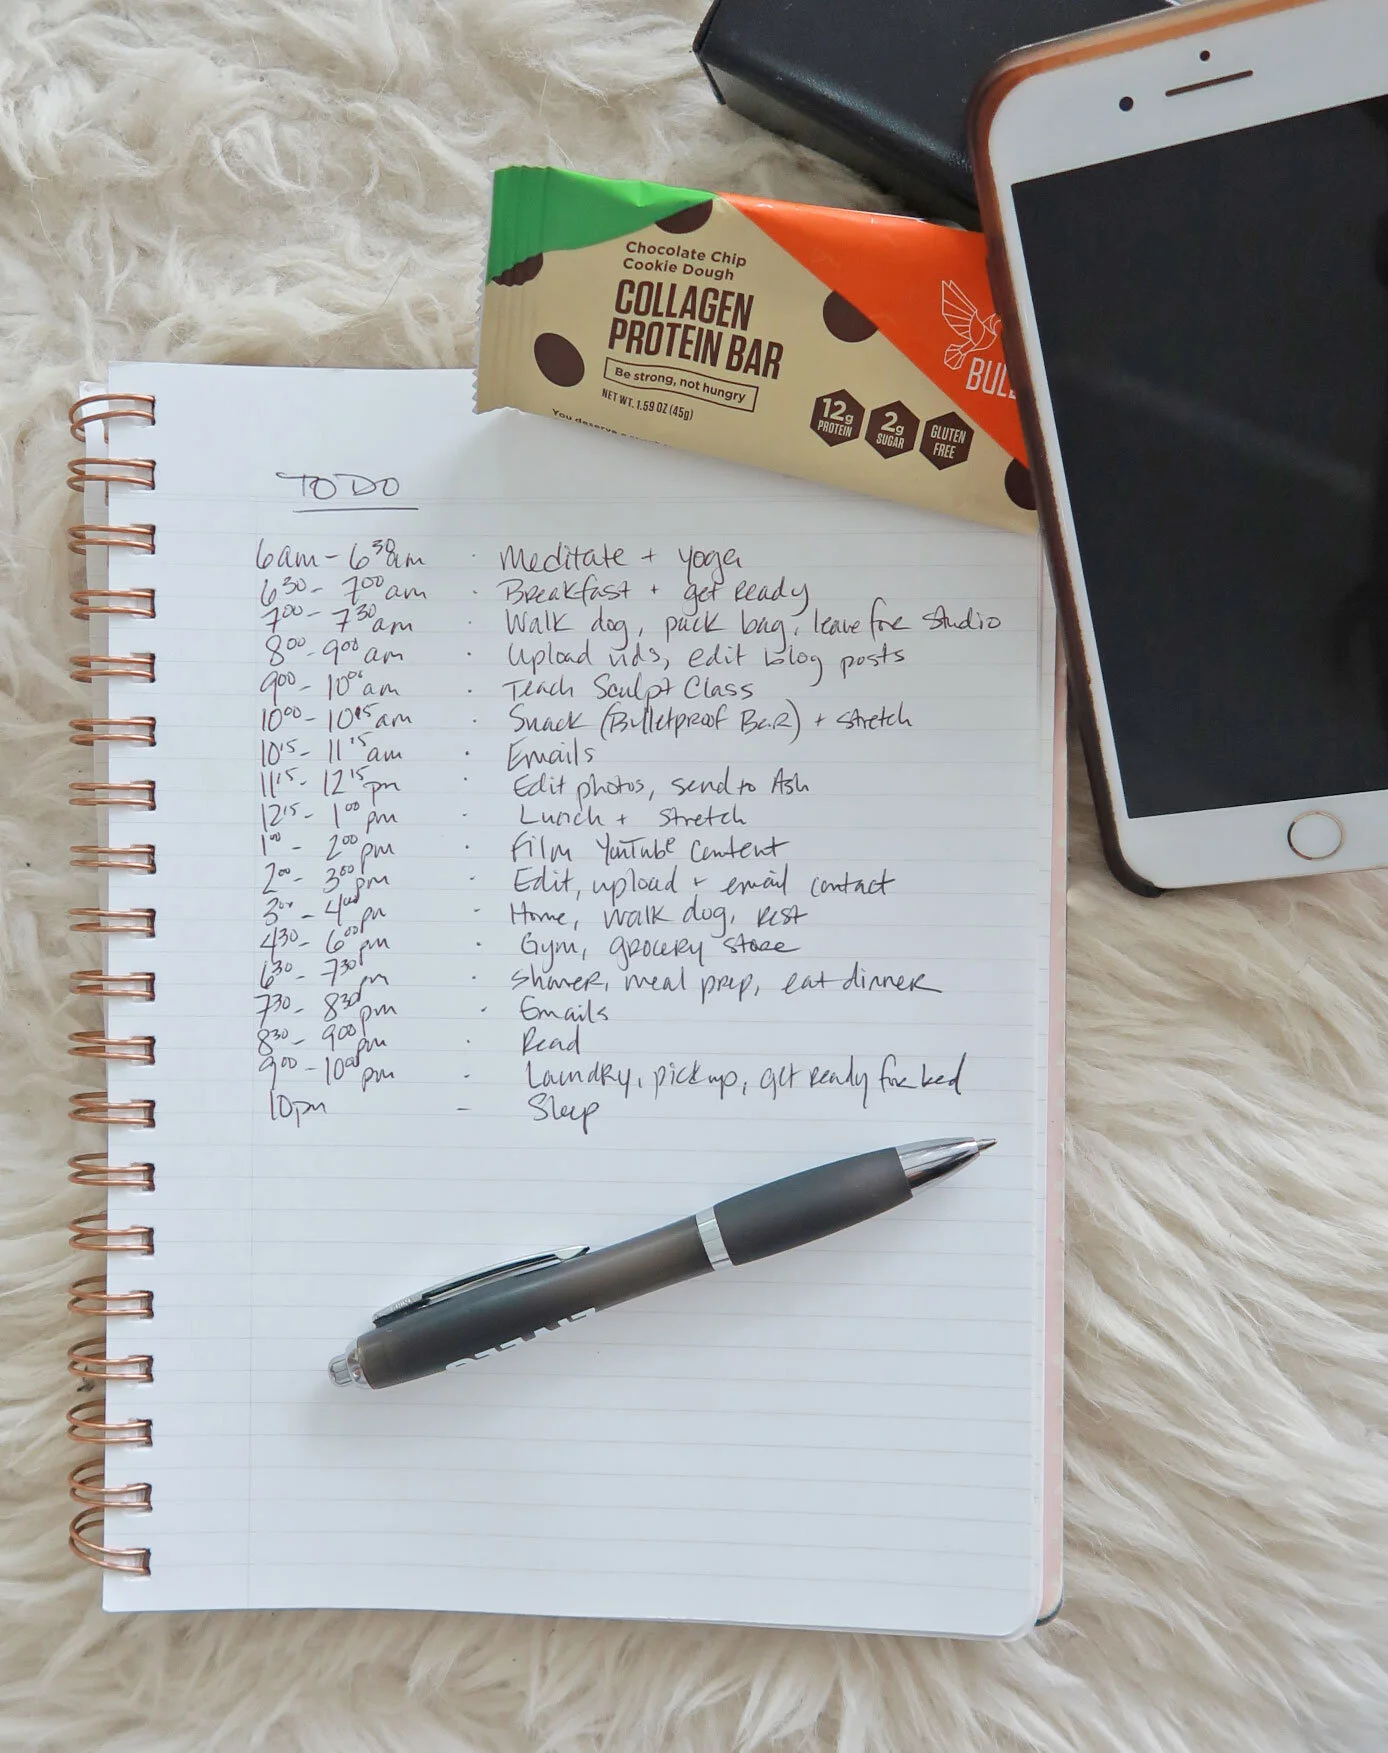 Chocolate Chip
Cookie Dough
COLLAGEN
PROTEIN BAR
Be strong, not hungry
NET WT. 1.59 OZ (45g)
You deserve a
12g PROTEIN
2g SUGAR
GLUTEN FREE
BULL
TO DO
6am - 6:30am · Meditate + yoga
6:30 - 7:00am · Breakfast + get ready
7:00 - 7:30am · Walk dog, pack bag, leave for Studio
8:00 - 9:00am · Upload vids, edit blog posts
9:00 - 10:00am · Teach Sculpt Class
10:00 - 10:15am · Snack (Bulletproof Bar) + stretch
10:15 - 11:15am · Emails
11:15 - 12:15pm · Edit photos, send to Ash
12:15 - 1:00pm · Lunch + stretch
1:00 - 2:00pm · Film YouTube Content
2:00 - 3:00pm · Edit, upload + email contact
3:00 - 4:00pm · Home, walk dog, rest
4:30 - 6:00pm · Gym, grocery store
6:30 - 7:30pm · Shower, meal prep, eat dinner
7:30 - 8:30pm · Emails
8:30 - 9:00pm · Read
9:00 - 10:00pm · Laundry, pick up, get ready for bed
10pm - Sleep